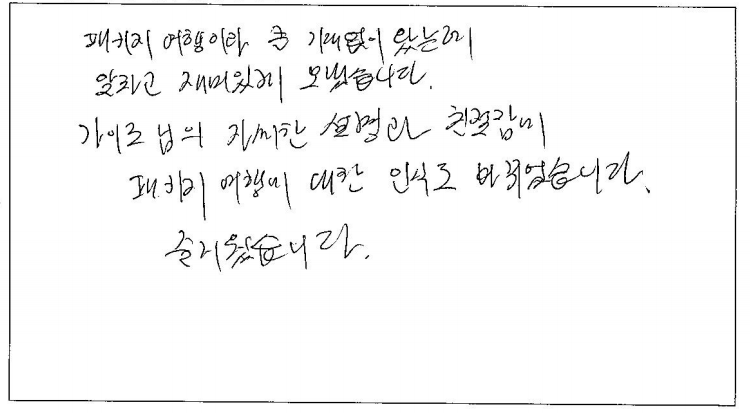 패키지 여행이라 큰 기대없이 왔는데
알차고 재미있게 보냈습니다.
가이드 님의 자세한 설명과 친절함에
패키지 여행에 대한 인식도 바뀌었습니다.
즐거웠습니다.